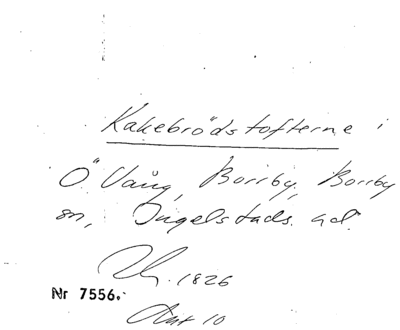 Kakebrödstofterne i
Ö Vång, Borrby, Borrby
sn, Ingelstads hd.
1826
Nr 7556.
Akt 10